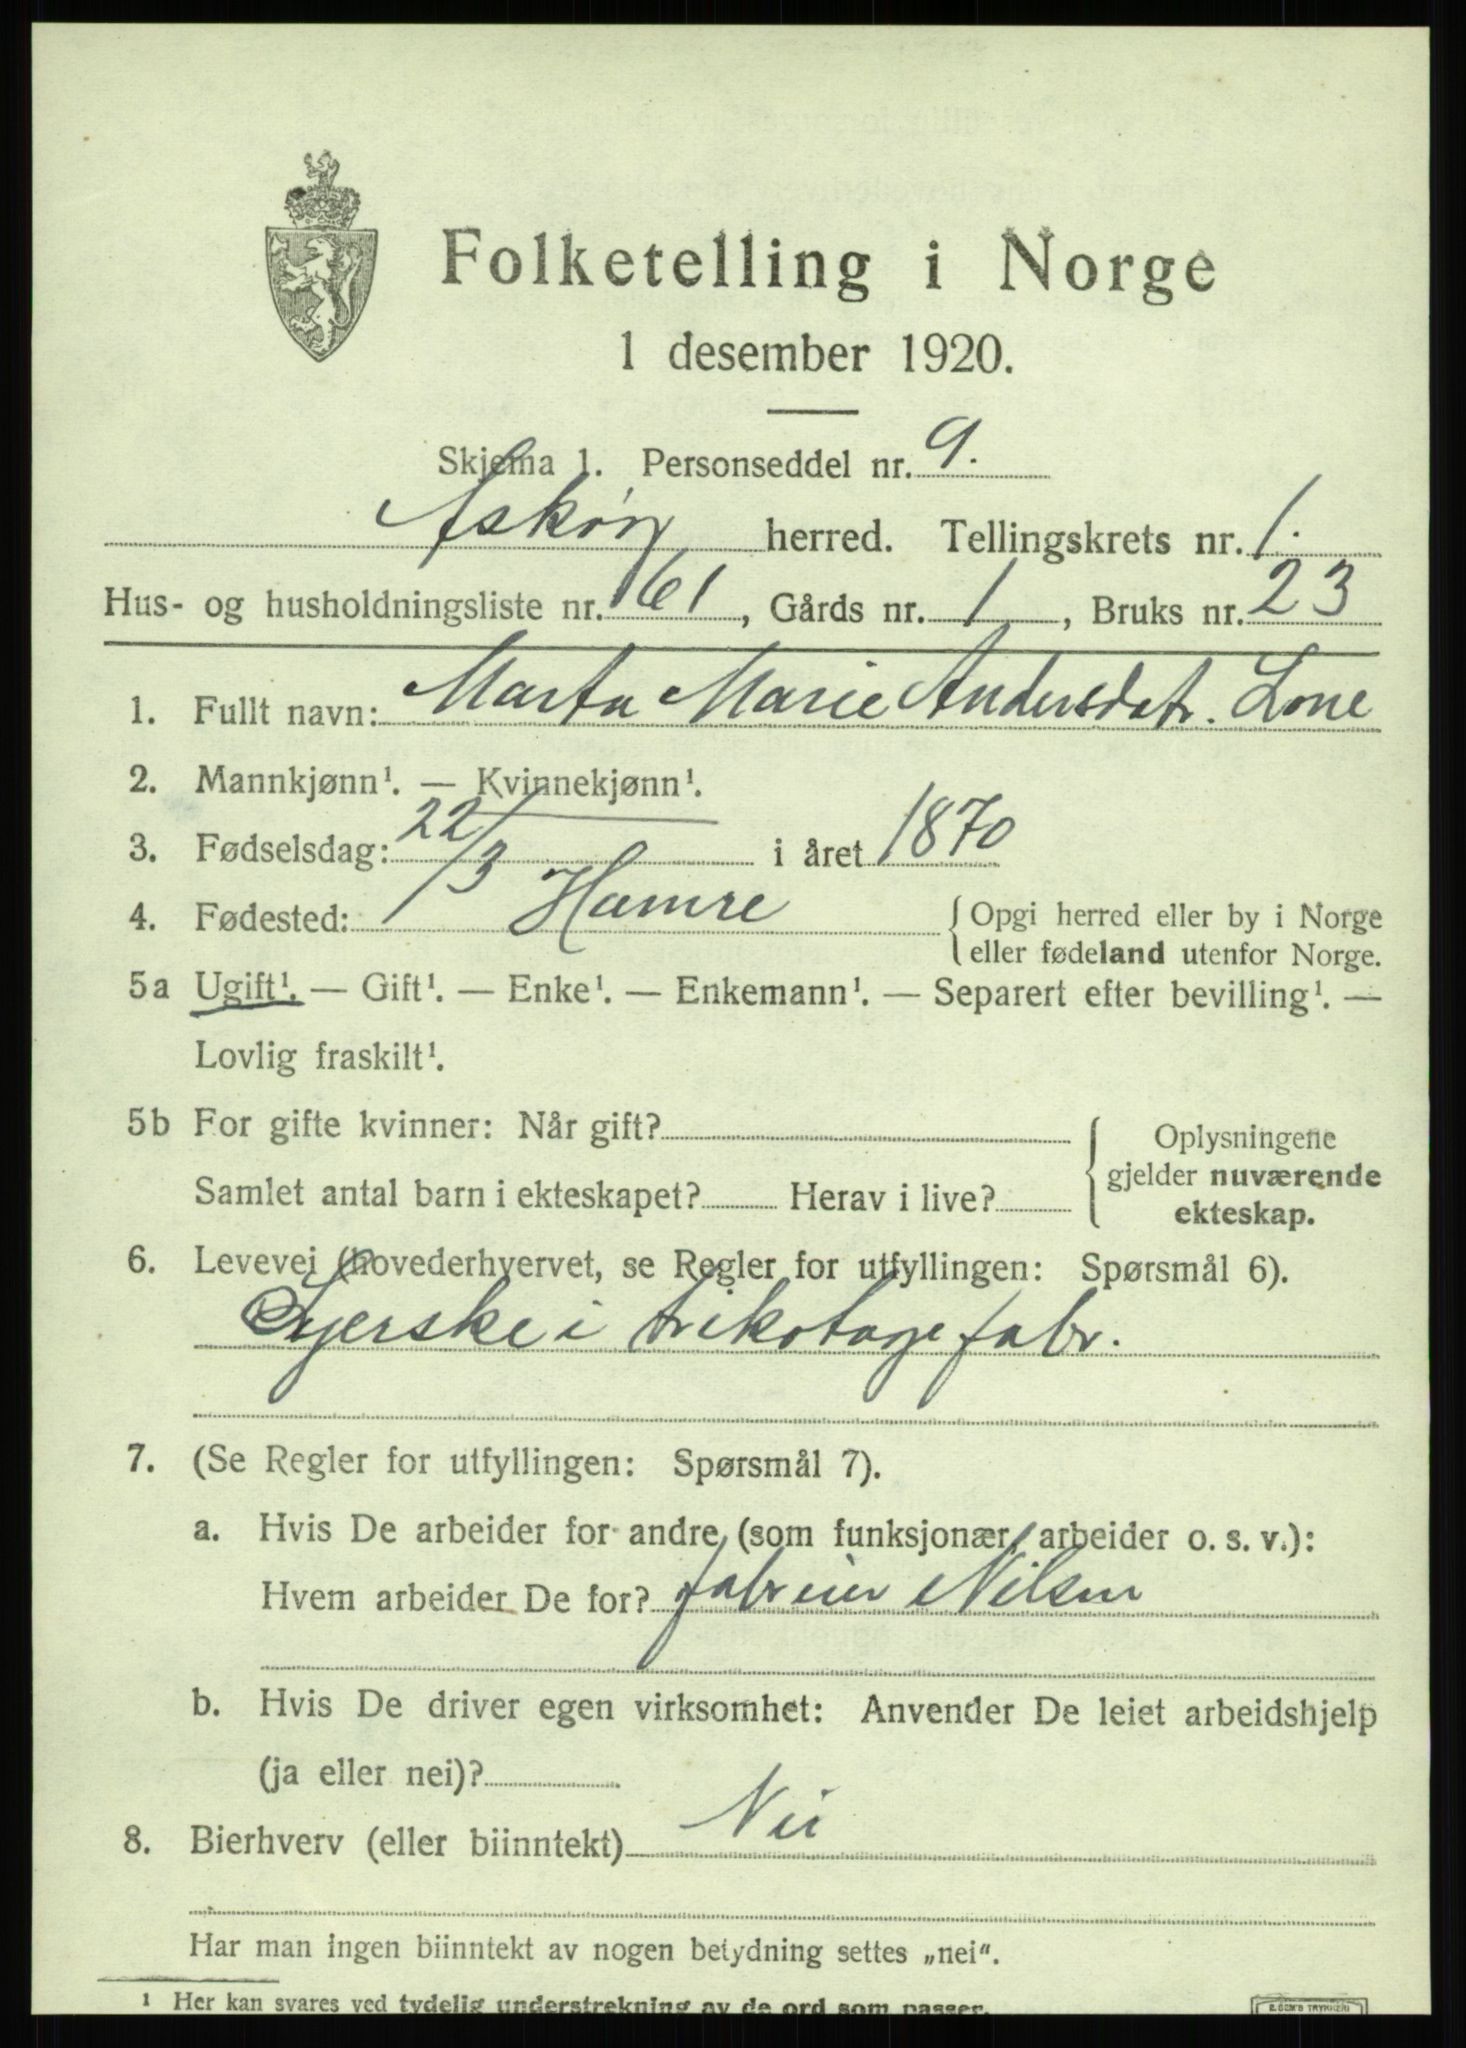 Folketelling i Norge
1 desember 1920.
Skjema 1. Personseddel nr. 9.
Askøy herred. Tellingskrets nr. 1.
Hus- og husholdningsliste nr. 161, Gårds nr. 1, Bruks nr. 23
1. Fullt navn: Marta Marie Andersdatr. Lone
2. Mannkjønn¹. — Kvinnekjønn¹.
3. Fødselsdag: 22/3 i året 1870
4. Fødested: Hamre {Opgi herred eller by i Norge
eller fødeland utenfor Norge.
5a Ugift¹. — Gift¹. — Enke¹. — Enkemann¹. — Separert efter bevilling¹. —
Lovlig fraskilt¹.
5b For gifte kvinner: Når gift? {Oplysningene
Samlet antal barn i ekteskapet? Herav i live? gjelder nuværende
ekteskap.
6. Levevei (hovederhvervet, se Regler for utfyllingen: Spørsmål 6).
Syerske i trikotagefabr.
7. (Se Regler for utfyllingen: Spørsmål 7).
a. Hvis De arbeider for andre (som funksjonær, arbeider o. s. v.):
Hvem arbeider De for? fabreier Nilsen
b. Hvis De driver egen virksomhet: Anvender De leiet arbeidshjelp
(ja eller nei)?
8. Bierhverv (eller biinntekt) Nei
Har man ingen biinntekt av nogen betydning settes „nei“.
¹ Her kan svares ved tydelig understrekning av de ord som passer.